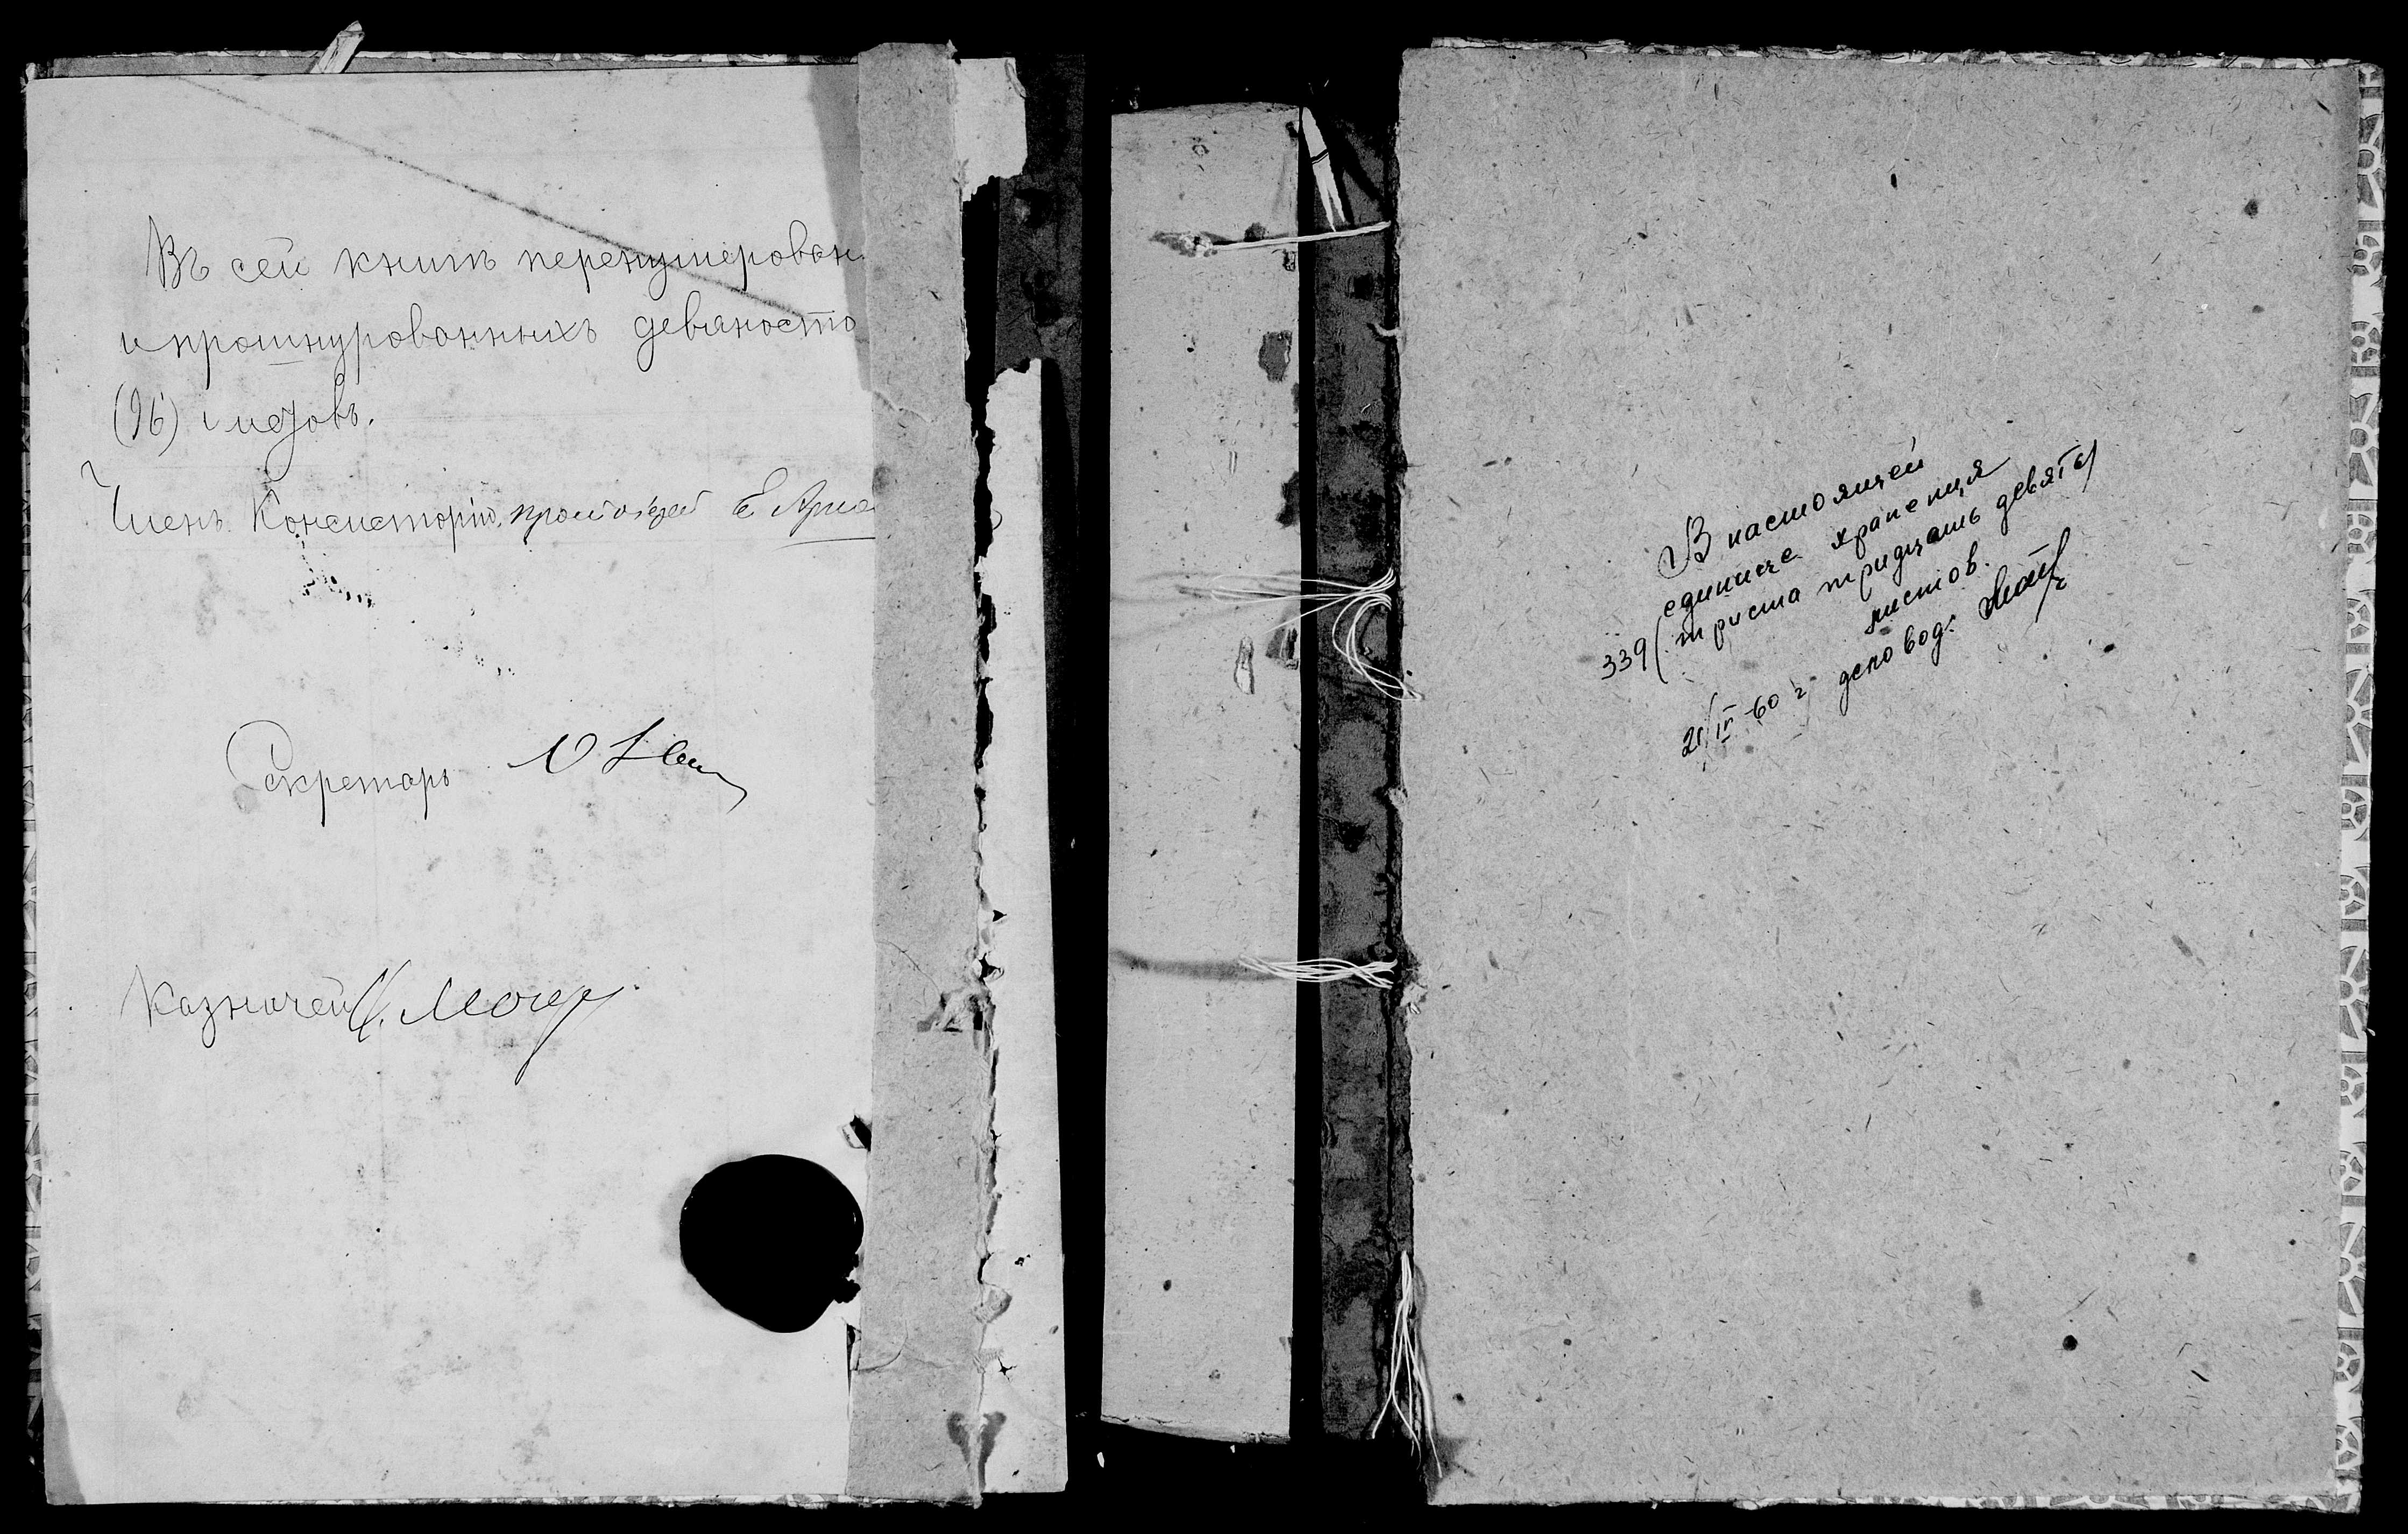 Въ сей книгѣ перенумерован
и прошнурованныхъ девяносто
(96) листовъ.
Членъ Консисторіи, протоіерей Е
Секретарь
Казначей
В настоящей
единице хранения
339 (триста тридцать девять)
листов.
21/IV-60 г деловод.